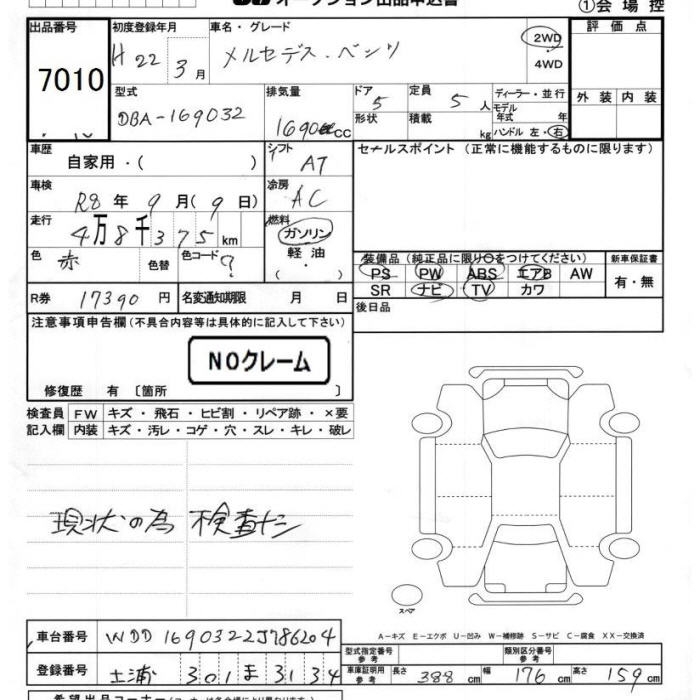 オークション出品申込書
①会場控
出品番号
7010
初度登録年月
H 22年 3月
車名・グレード
メルセデス・ベンツ
2WD
4WD
評価点
外装 内装
型式
DBA-169032
排気量
1690cc
ドア 5
形状
定員 5人
積載 kg
ディーラー・並行
モデル年式 年
ハンドル 左・右
車歴
自家用・( )
シフト
AT
セールスポイント (正常に機能するものに限ります)
車検
R8年 9月(9日)
冷房
AC
走行
4万8千375km
燃料
ガソリン
軽油
( ・ )
色 赤 色替 色コード ?
装備品 (純正品に限り○をつけてください)
PS PW ABS エアB AW
SR ナビ TV カワ
新車保証書
有・無
R券 17390円
名変通知期限 月 日
後日品
注意事項申告欄(不具合内容等は具体的に記入して下さい)
NOクレーム
修復歴 有 〔箇所 〕
検査員記入欄
FW キズ・飛石・ヒビ割・リペア跡・×要
内装 キズ・汚レ・コゲ・穴・スレ・キレ・破レ
現状の為 検査ナシ
スペア
A－キズ E－エクボ U－凹み W－補修跡 S－サビ C－腐食 XX－交換済
車台番号 WDD1690322J786204
型式指定番号 参考
類別区分番号 参考
登録番号 土浦 301 ま 3134
車庫証明用 参考 長さ 388cm 幅 176cm 高さ 159cm